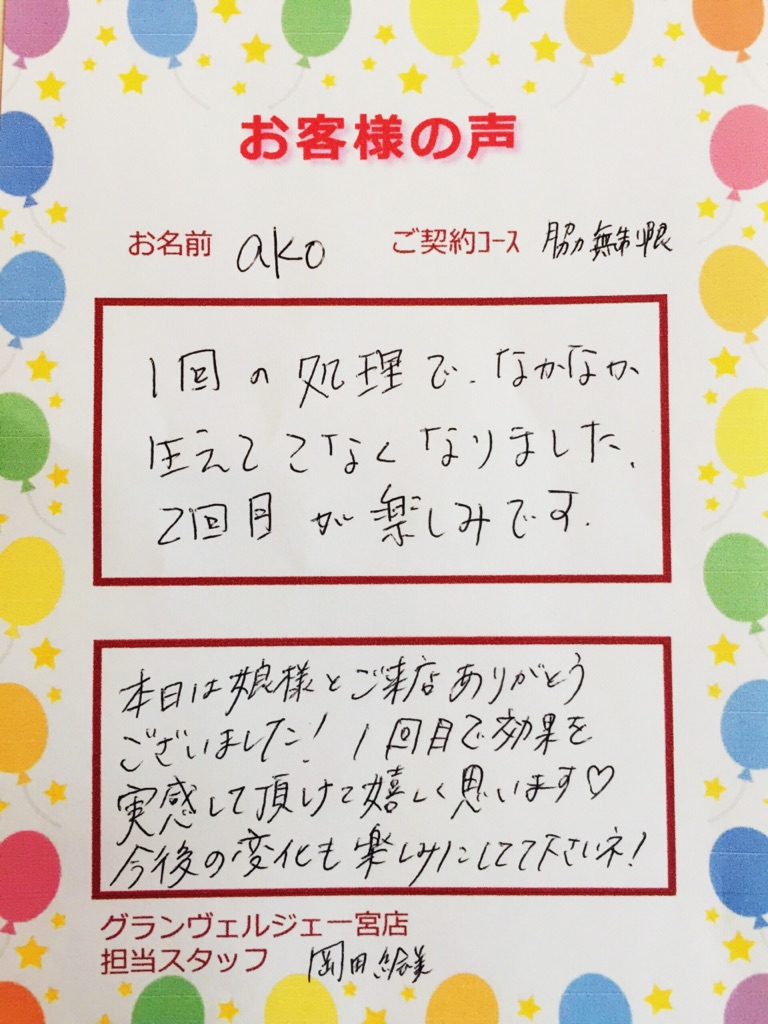 お客様の声
お名前 ako ご契約コース 脇無制限
1回の処理で、なかなか
生えてこなくなりました。
2回目が楽しみです。
本日は娘様とご来店ありがとう
ございました！ 1回目で効果を
実感して頂けて嬉しく思います♡
今後の変化も楽しみにしてて下さいネ！
グランヴェルジェ一宮店
担当スタッフ 岡田絵美